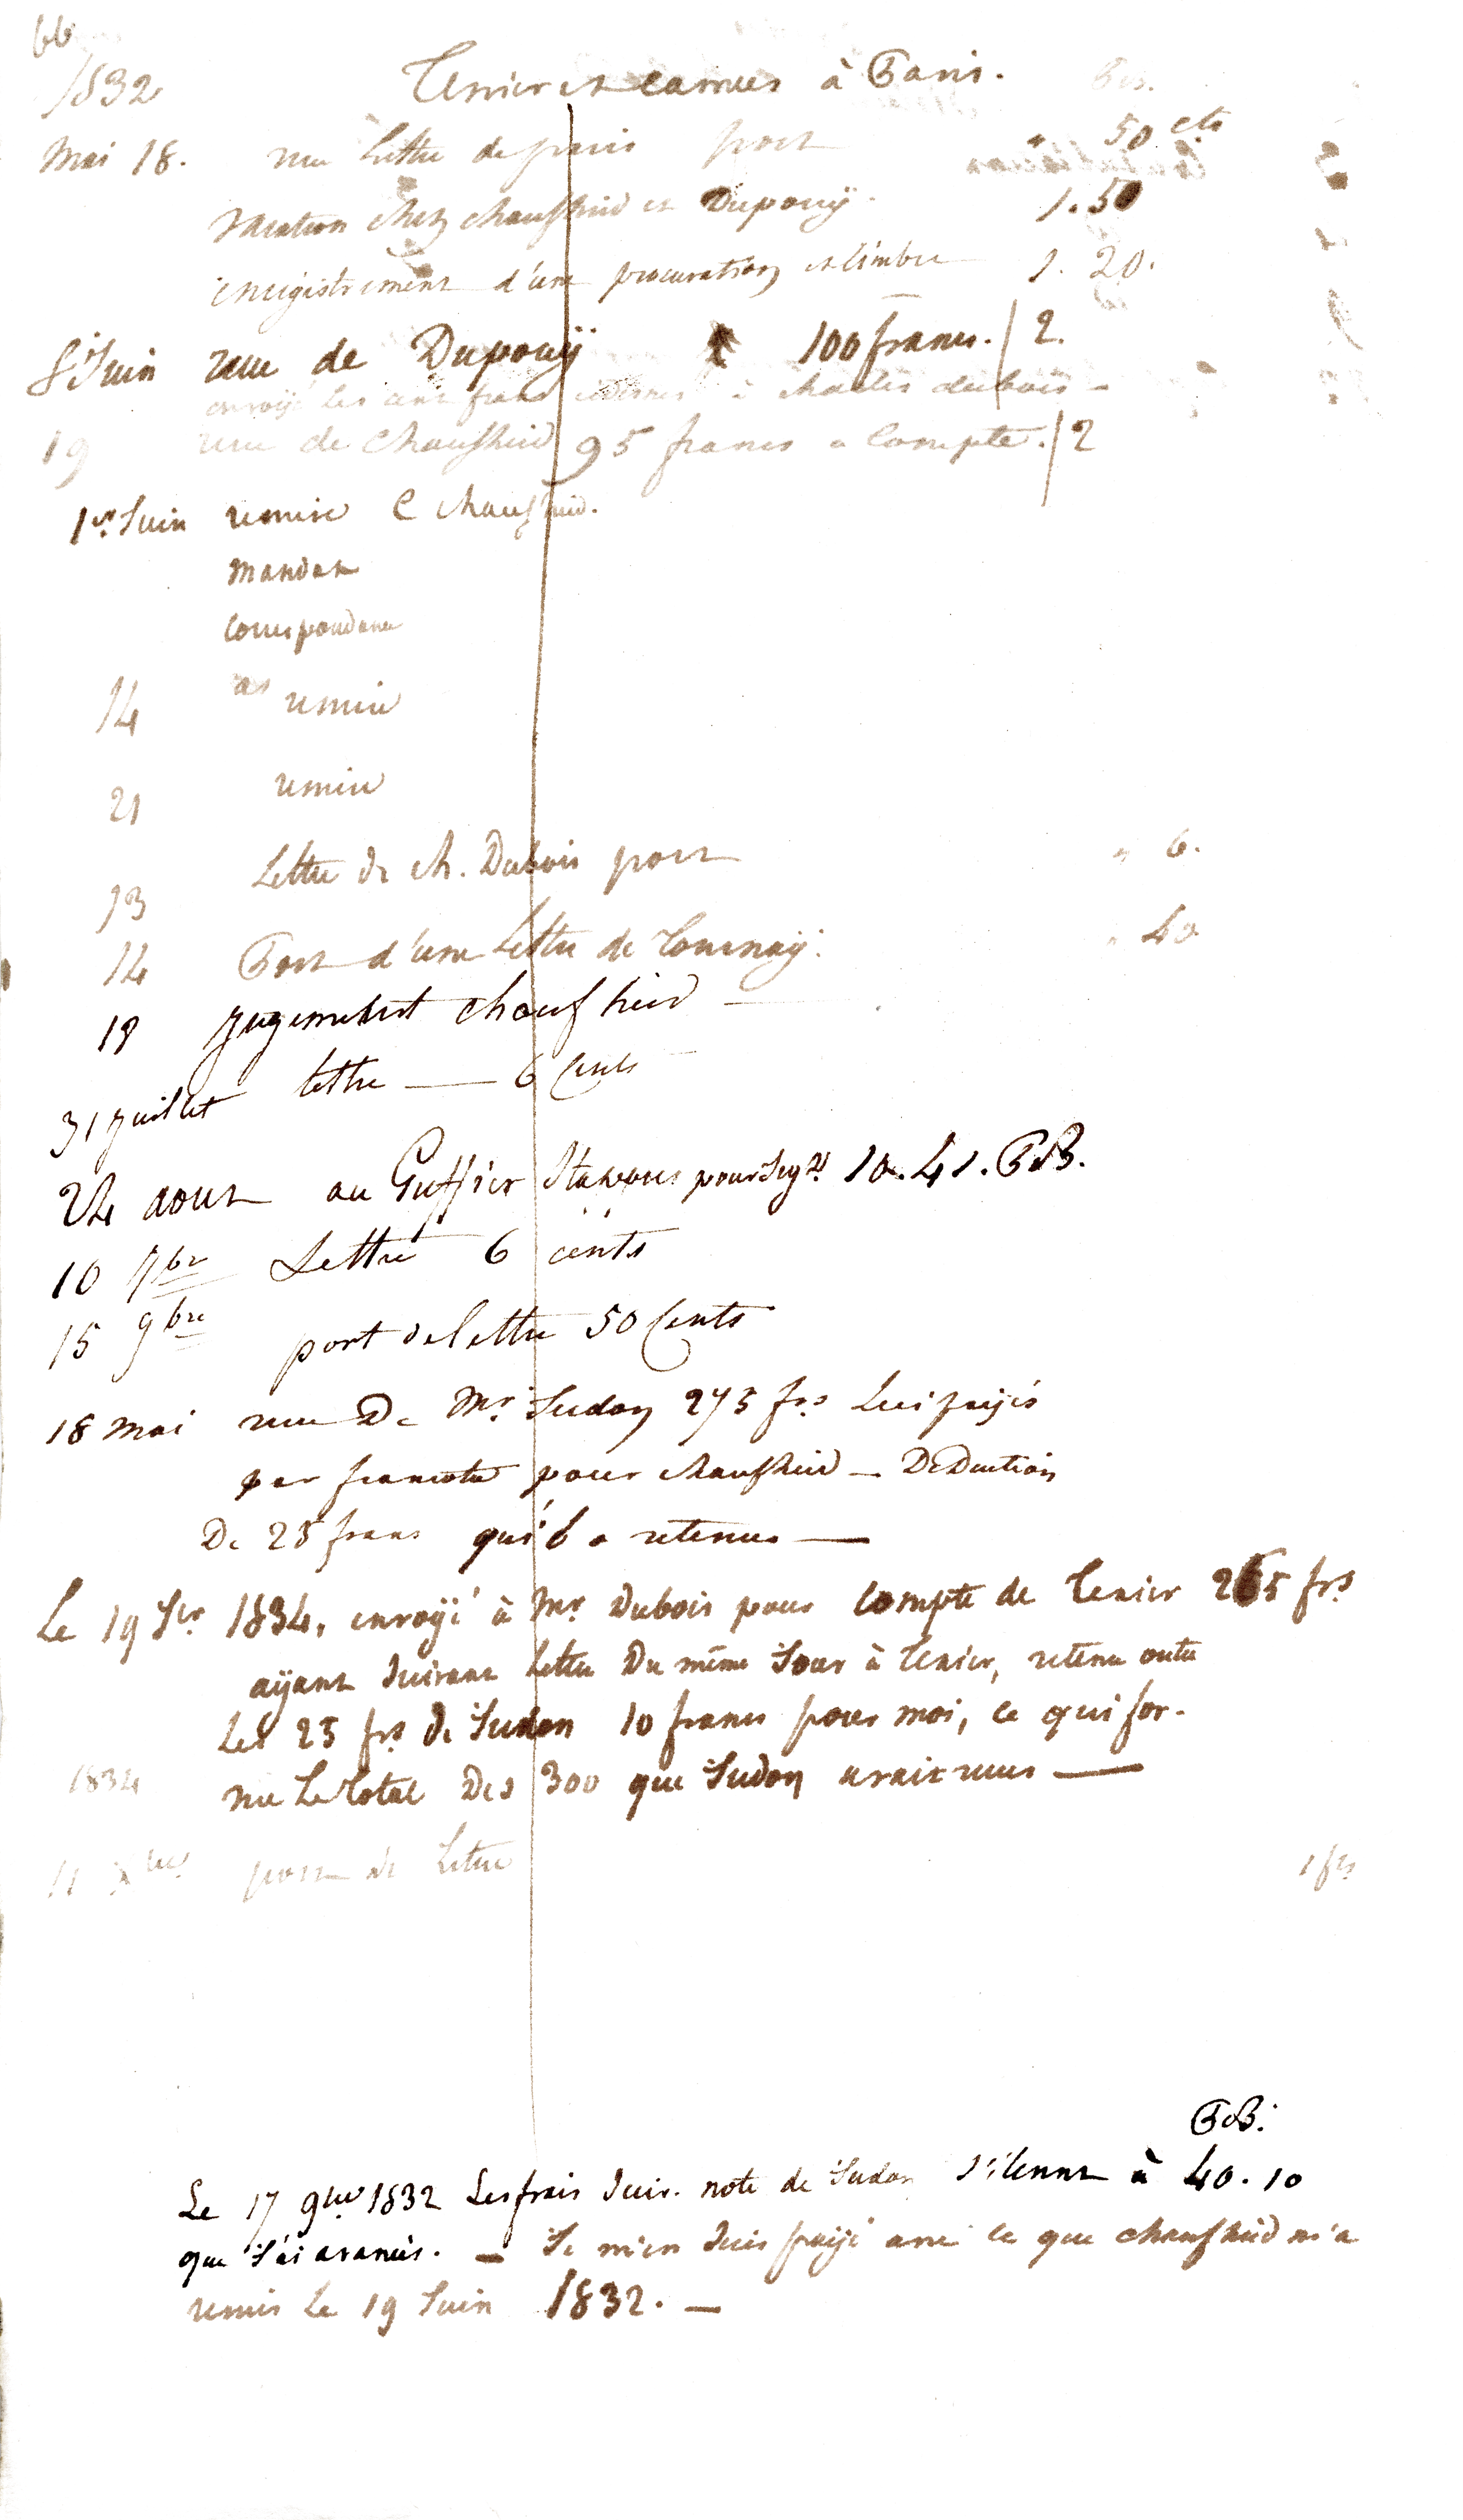 66
1832 Tenier et camus à Paris. frs.
Mai 18. recu Lettre de paris port " 50 cts
vacation chez chaufheid et Dupouÿ. 1. 50
enregistrement d'une procuration et timbre 1. 20.
8 Juin recu de Dupouÿ 100 francs. / 2.
envoyé les cent francs à charles dubois
19 recu de Chaufheid 95 francs a Compte. / 2
1er Juin remise C chaufheid.
Mandat
Correspondance
14 remise
21 remise
13 Lettre de Ch. Dubois port " 6.
14 Port d'une Lettre de Tournaÿ. " 40
19 jugement chaufheid
31 juillet lettre — 6 Cents
24 aout au Greffier Stappers pour Sig.on 10. 41. PB.
10 7bre Lettre 6 cents
15 9bre port de lettre 50 Cents
18 Mai recu De Mr. Judon 275 frs Lui paÿés
par francotte pour chaufheid — Déduction
De 25 francs qu'il a retenus —
Le 19 1834, envoÿé à Mr. Dubois pour Compte de Tenier 265 frs
aÿant suivant Lettre Du même Jour à Tenier, retenu outre
Les 25 frs de Judon 10 francs pour moi, ce qui for-
1834 me Le Total Des 300 que Judon avait recus —
11 Xbre port de Lettre 1 frs
PB.
Le 17 9bre 1832 Les frais suiv. note de Judon s'élevent à 40. 10
que J'ai avancés. — Je m'en suis paÿé avec ce que chaufheid m'a
remis Le 19 Juin 1832. —